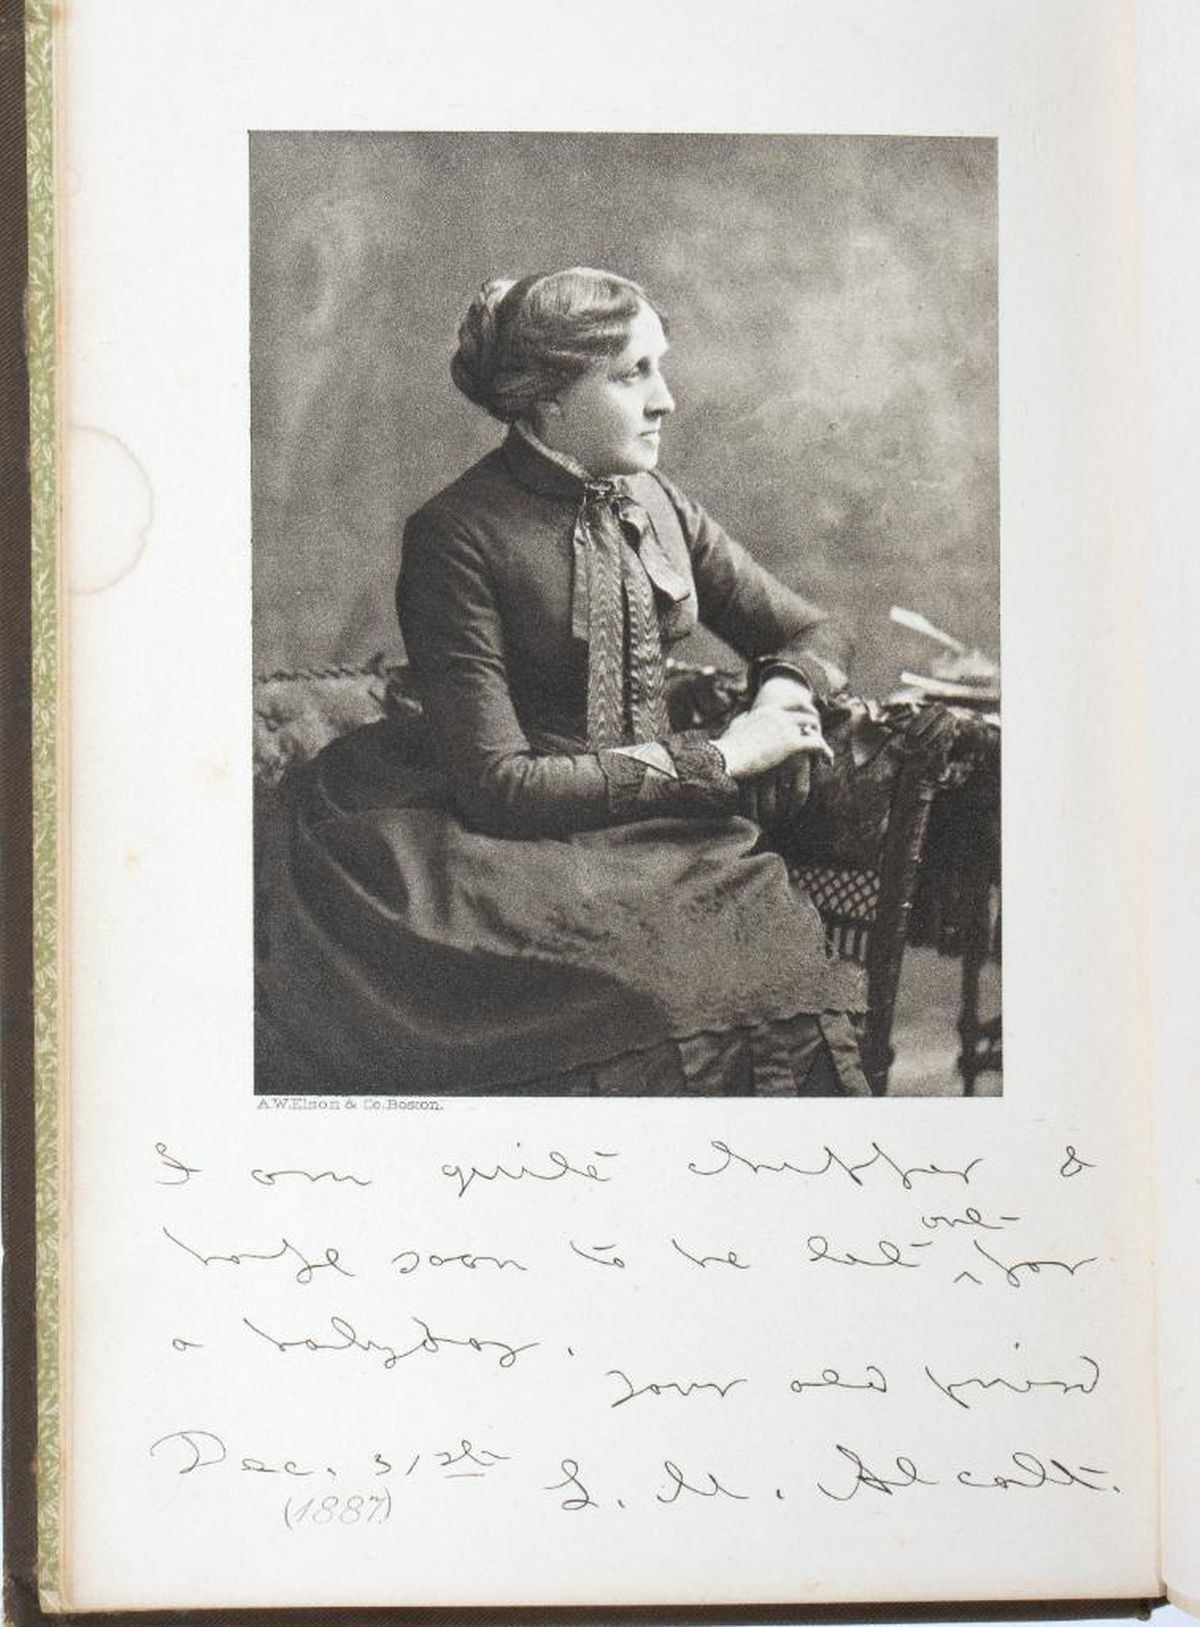 A.W.Elson & Co. Boston.
I am quite chipper &
hope soon to be let out for
a holyday.
Your old friend
Dec. 31st L. M. Alcott.
(1887)